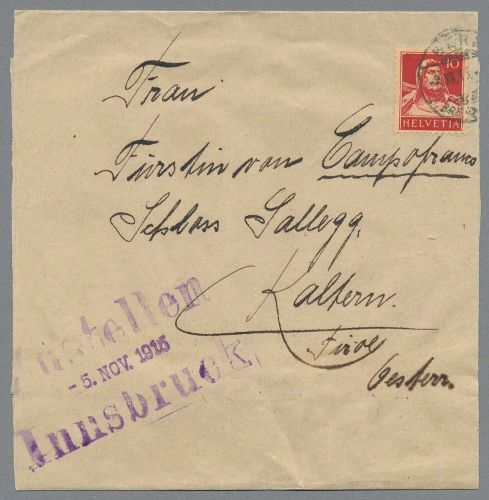 10
HELVETIA
Frau
Fürstin von Campofranco
Schloss Sallegg.
Kaltern.
Tirol
Oesterr.
Zustellen
- 5. NOV. 1915
Innsbruck.